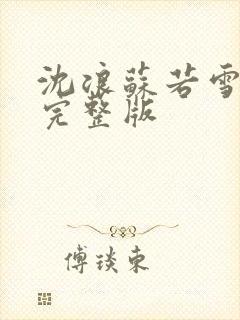 沈浪蘇若雪
完整版
傅琰東